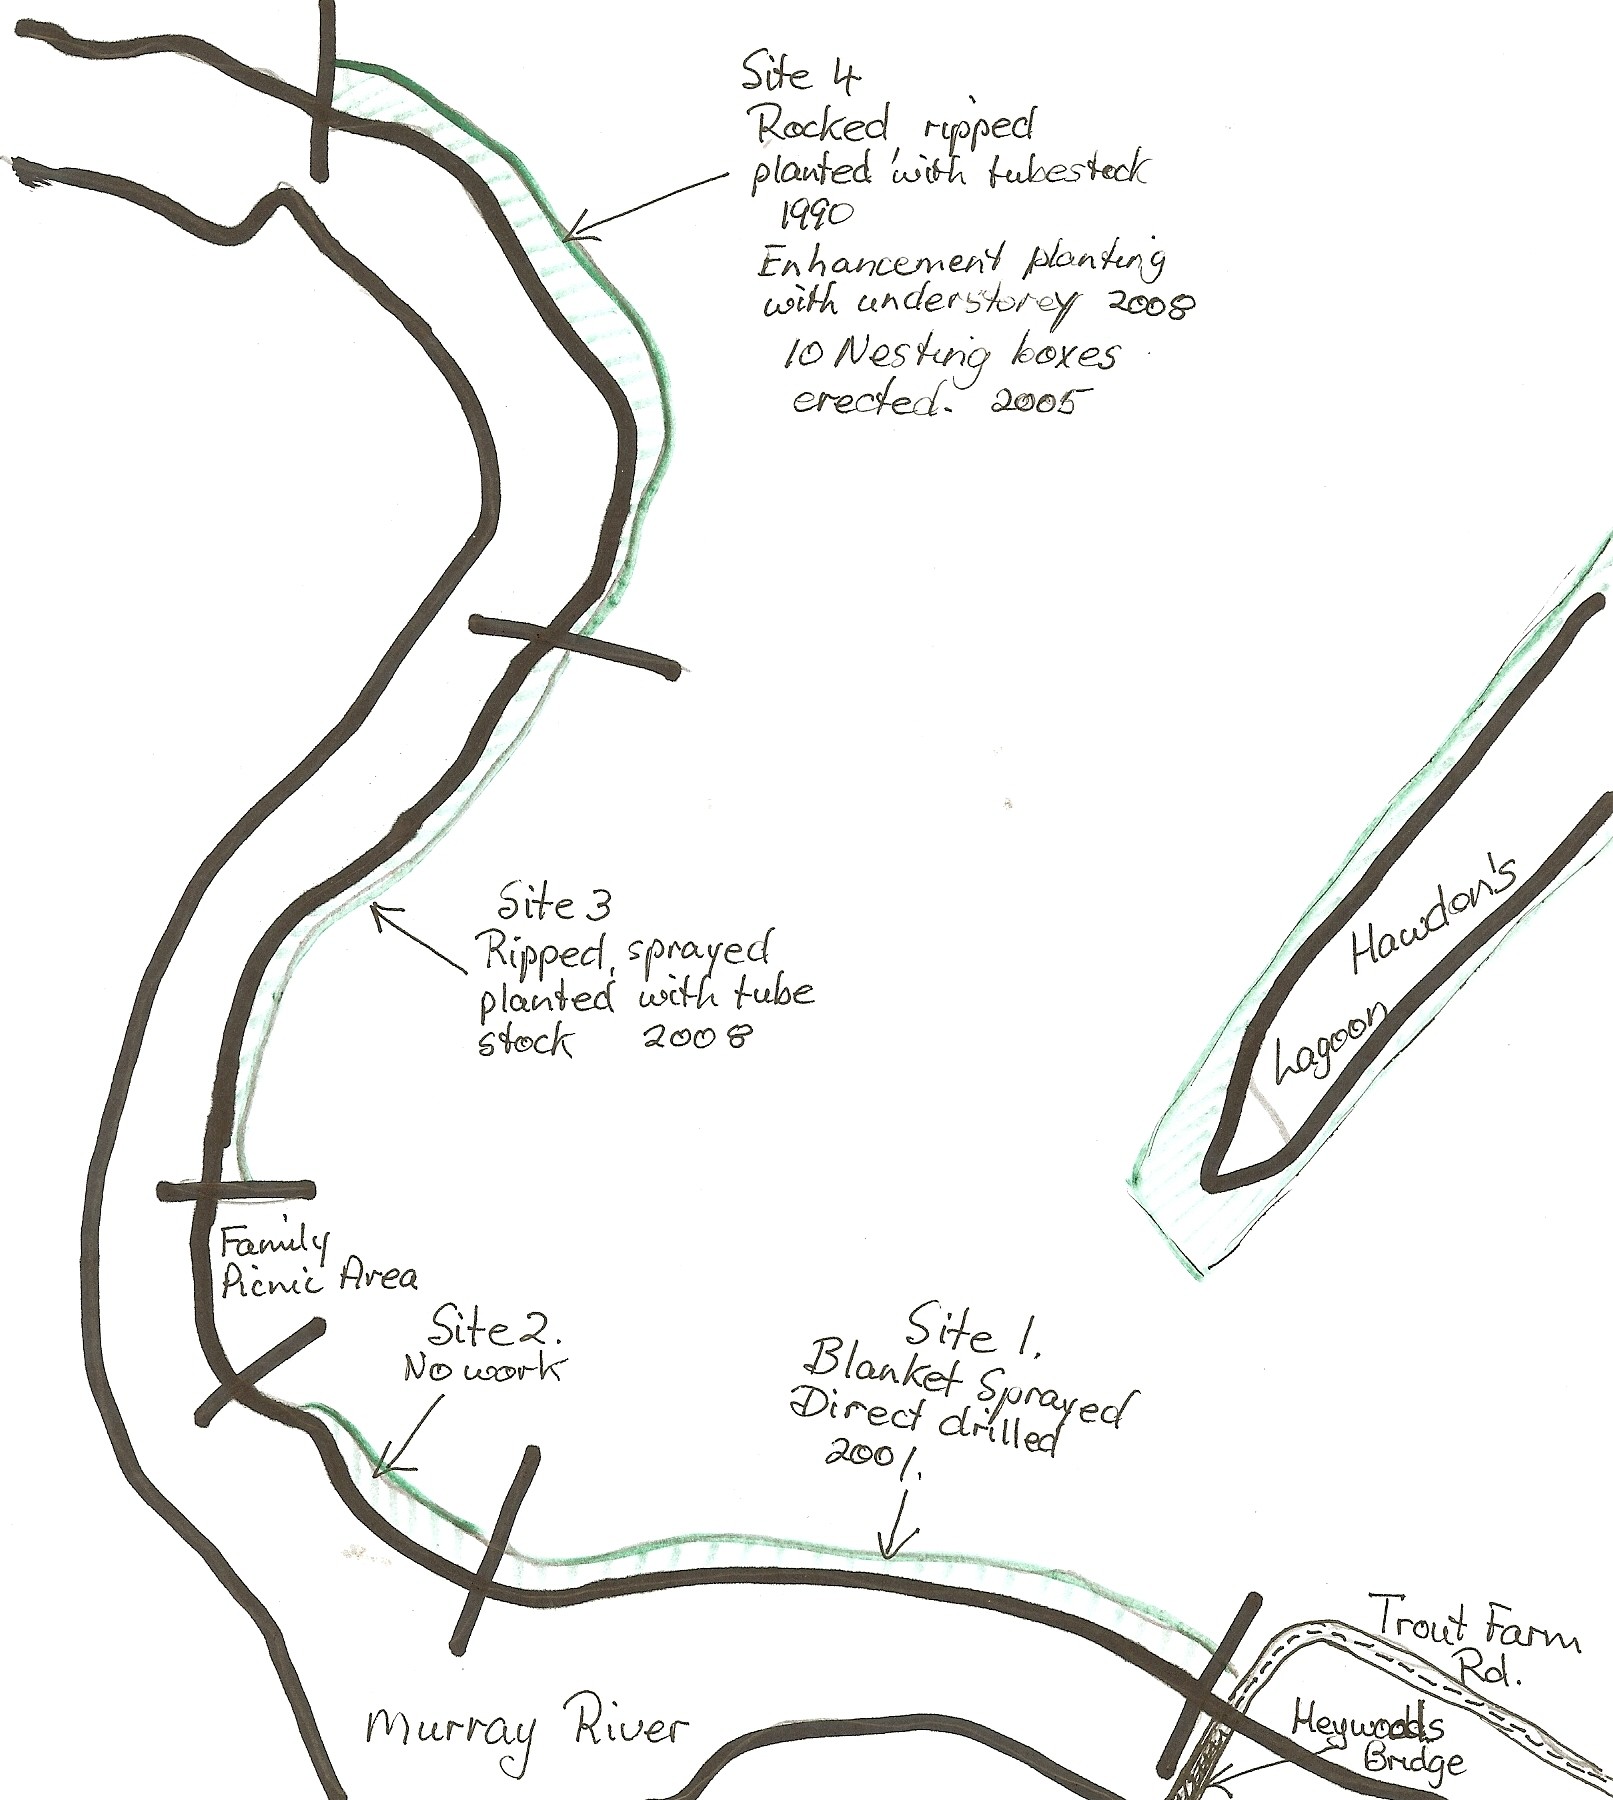 Site 4
Rocked, ripped
planted with tubestock
1990
Enhancement planting
with understorey 2008
10 Nesting boxes
erected. 2005
Site 3
Ripped, sprayed
planted with tube
stock 2008
Hawdon's
Lagoon
Family
Picnic Area
Site 2.
No work
Site 1.
Blanket Sprayed
Direct drilled
2001.
Trout Farm
Rd.
Heywoods
Bridge
Murray River